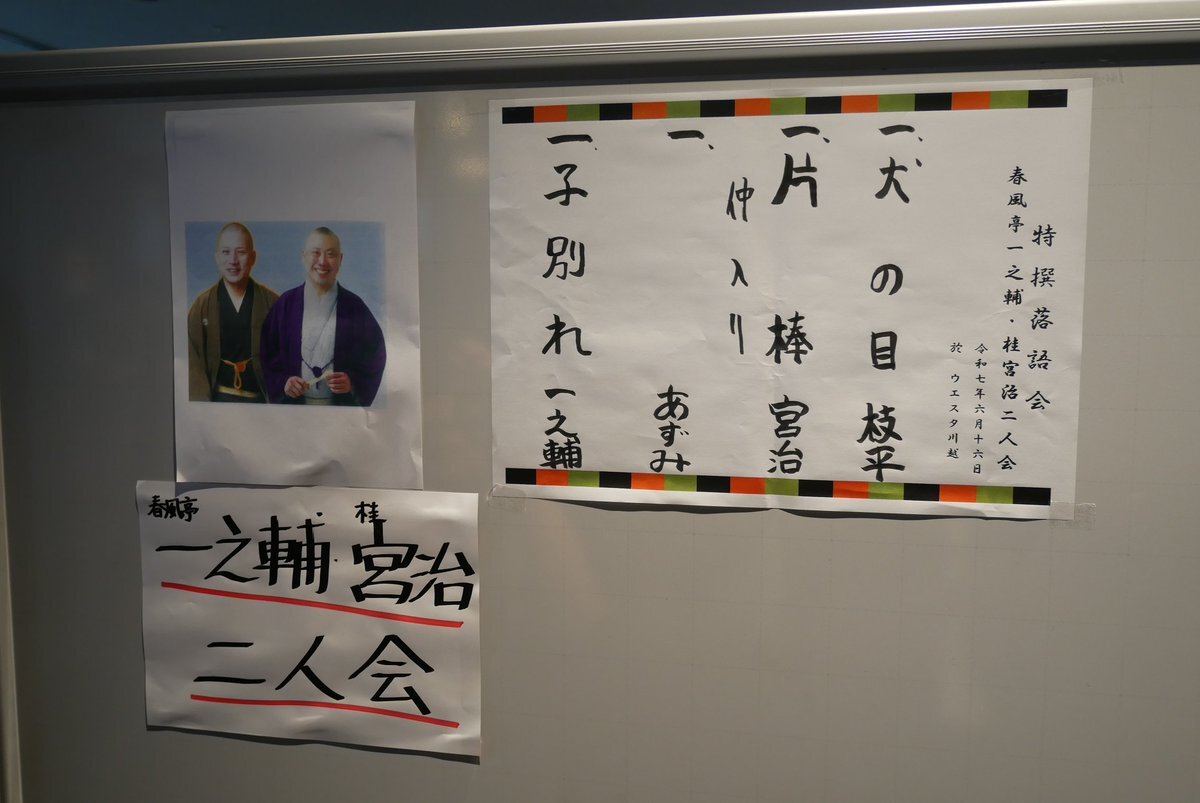 特撰落語会
春風亭一之輔・桂宮治二人会
令和七年六月十六日
於 ウエスタ川越
一、犬の目 枝平
一、片棒 宮治
仲入り
一、 あずみ
一、子別れ 一之輔
春風亭 桂
一之輔・宮治
二人会